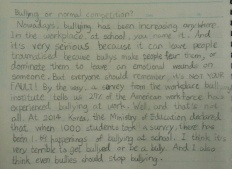 Bullying or normal competition?
Nowadays, bullying has been increasing anywhere.
In the workplace, at school, you name it. And
it's very serious because it can leave people
traumatised because bullys make people fear them, or
dominate them to leave an emotional wounds on
someone. But everyone should remember, it's not YOUR
FAULT! By the way, a survey from the workplace bull
institute tells us 27% of the American workforce have
experienced bullying at work. Well, and that's not
all. At 2014, Korea, the Ministry of Education declared
that when 1000 students take a survey, there had
been 1. happenings of bullying at school. I think it's
very terrible to get bullied or be a bully. And I also
think even bullies should stop bullying.